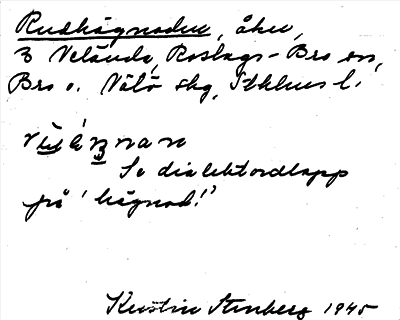 Rudhägnaden, åker,
3 Velända, Roslags-Bro sn,
Bro o. Vätö skg, Sthlms l.
Se dialektordlapp
på 'hägnad!'
Kerstin Stenberg 1945